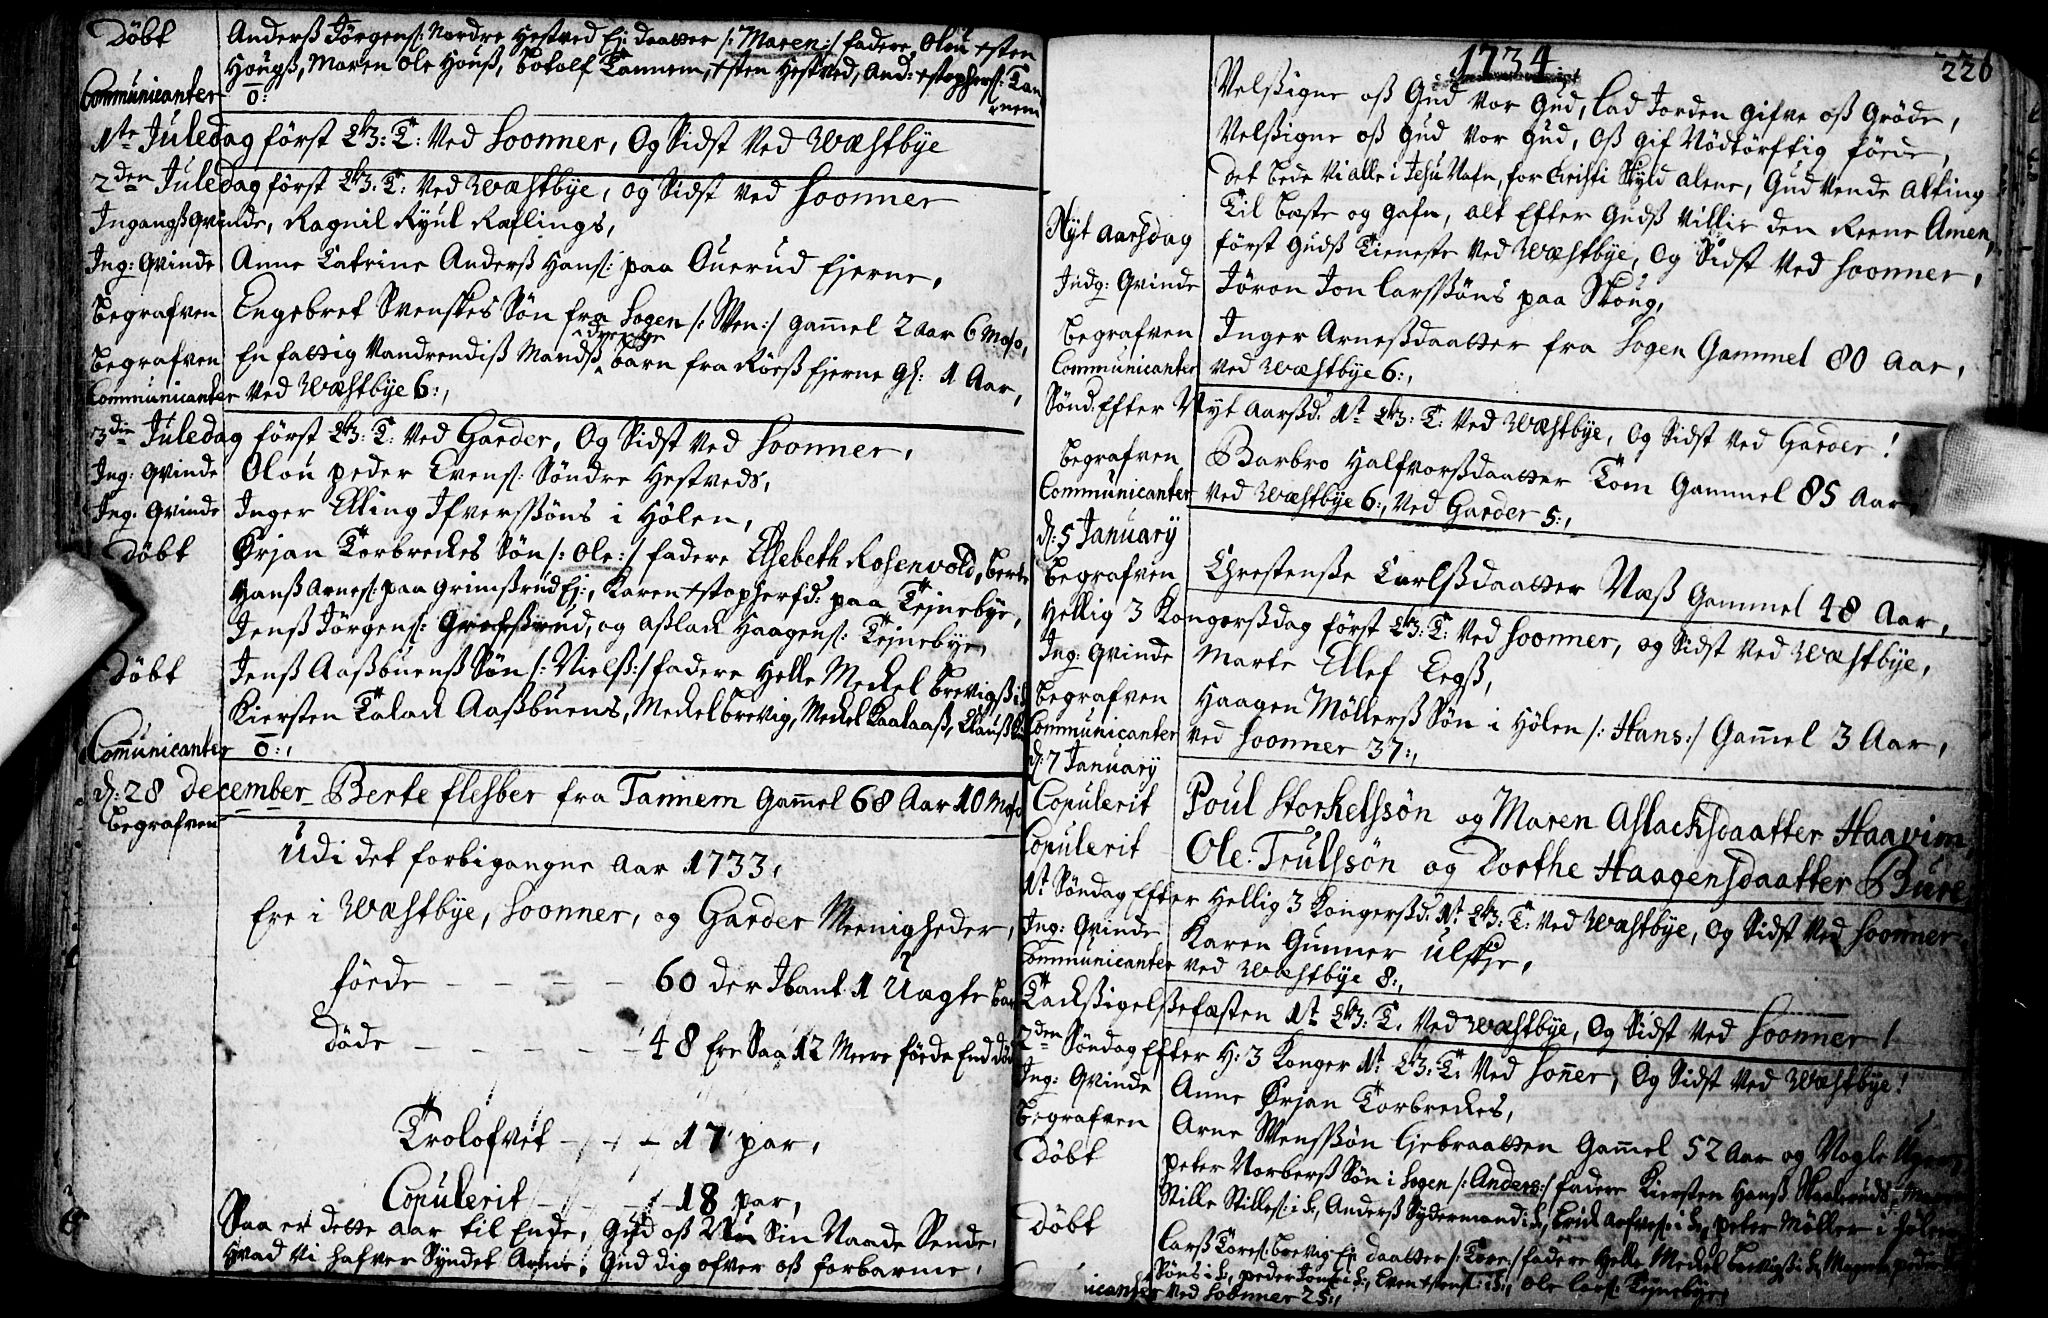 Döbt Anderß Jörgens: Nordre Hestved Ej: daatter /: Maren :/ fadere, Olou +sten
Hougß, Maren Ole Houß, Botolf Tannem, +sten Hestved, And: +stophers: Tan
nem
Communicanter 0:
1te Juledag först GŪ: T: Ved Soonner, Og Sidst Ved Wæstbye
2den Juledag först T: Ved Wæstbye, og Sidst ved Soonner
Ingangß Qvinde, Ragnil Ryul Røflings,
Ing: Qvinde Anne Catrine Anderß Hans: paa Ouerud Ejerne,
Begrafven Engebret Svenskes Sön fra Sogen /: Sven :/ gammel 2 Aar 6 Mdr,
Begrafven En fattig Vandrendiß Mandß barn fra Röeß Ejerne gl: 1 Aar,
Communicanter Ved Wæstbye 6:,
3die Juledag först T: Ved Garder, Og Sidst Ved Soonner,
Ing: Qvinde Olou peder Evens: Söndre Hestveds,
Ing: Qvinde Inger Elling Ifverssöns i Hölen,
Döbt Örjan Torbreckes Sön /: Ole :/ fadere Elsebeth Rosenvold, Berte
Hanß Arnes: paa Grimßrud Ej:, Karen +stophersd: paa Tejnebye,
Jenß Jörgens: Grefßrud, og Aßlack Haagens: Tejnebye,
Döbt Jenß Aaßbuenß Sön /: Nielß :/ fadere Helle Meckel Brevigß i S
Kiersten Talack Aaßbuens, Meckel brevig, Meckel Kaalaaß, Clauß
Communicanter 0:,
d: 28 December Berte flesber fra Tannem Gammel 68 Aar 10 Mdr
Begrafven
Udi det forbigangne Aar 1733,
Ere i Wæstbye, Soonner, og Garder Meenigheder,
föede - - - - 60 der Iblant 1 Uægte bar
döde - - - - 48 Ere Saa 12 Meere föede End död
Trolofvet - - - 17 par,
Copulerit - - - 18 par,
Saa er dette Aar til Ende, Gud oß Nu Sin Naade Sende,
Hvad Vi hafver Syndet Arme, Gud dig ofver oß forbarme,
1734. 226
Velßigne oß Gud Vor Gud, Lad Jorden Gifve oß Gröde,
Velßigne oß Gud Vor Gud, Oß gif Nödtörftig föede,
Det bede Vi alle i Jesu Nafn, for Christi Skyld alene, Gud Vende alting
Til beste og gafn, alt Efter Gudß Villie den Reene Amen,
Nyt Aarsdag först Gudß Tieneste Ved Wæstbye, Og Sidst Ved Soonner,
Indg: Qvinde Jöron Jon Larssöns paa Skoug,
Begrafven Inger Arneßdaatter fra Sogen Gammel 80 Aar,
Communicanter Ved Wæstbye 6:,
Sönd. Efter Nyt Aarßd: 1st T: Ved Wæstbye, Og Sidst Ved Garder!
Begrafven Barbro Halfvorßdaatter Tom Gammel 85 Aar,
Communicanter Ved Wæstbye 6:, Ved Garder 5:,
d: 5 January
Begrafven Chrestenße Carlßdaatter Næß Gammel 48 Aar,
Hellig 3 Kongerßdag först T: Ved Soonner, og Sidst Ved Wæstbye,
Ing: Qvinde Marte Ellef Eegß,
Begrafven Haagen Möllerß Sön i Hölen /: Hans :/ Gammel 3 Aar,
Communicanter Ved Soonner 37:,
d: 7 January
Copulerit Poul Storkelssön og Maren Aslacksdaatter Haavim,
Copulerit Ole Trulssön og Dorthe Haagensdaatter Bure
1st Söndag Efter Hellig 3 Kongerßd: 1st T: Ved Wæstbye, Og Sidst Ved Soonner,
Ing: Qvinde Karen Gunner Ulskje,
Communicanter Ved Wæstbye 8:,
Tackßigelßefæsten 1st T: Ved Wæstbye, Og Sidst Ved Soonner!
2den Söndag Efter H: 3 Konger 1st T: Ved Sonner, Og Sidst Ved Wæstbye!
Ing: Qvinde Anne Örjan Torbreckes,
Begrafven Arne Svenssön Gjebraatten Gammel 52 Aar og Nogle Uger
Döbt Peter Norberß Sön i Sogen /: Anders :/ fadere Kiersten Hanß
Stille Stilles: i S:, Anderß Sydermand i S:, peter Möller i Hölen
Döbt Larß Tores: brevig Ej daatter /: Tore :/ fadere Helle Meckel brevigß i S:
Söns i S:, peder i S:, Even +stens: i S:, Ole Lars: Tejnebye,
icanter Ved Soonner 25:,